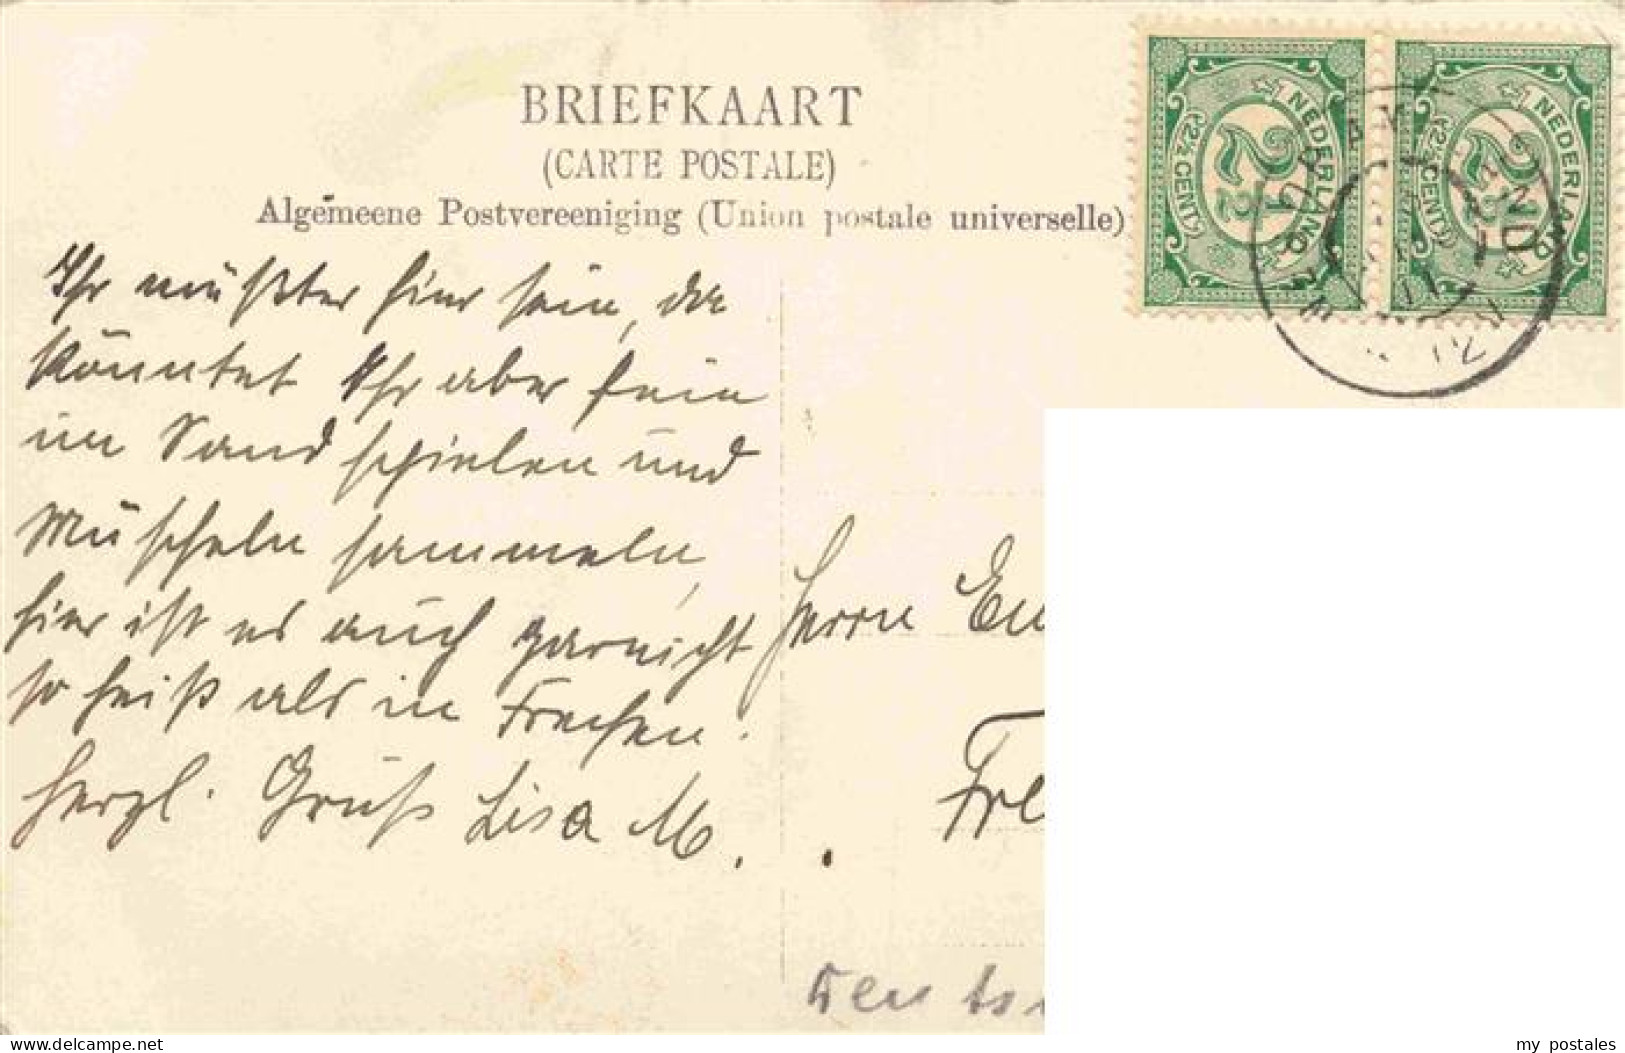 BRIEFKAART
(CARTE POSTALE)
Algemeene Postvereeniging (Union postale universelle)
NEDERLAND
2½
(2½ CENT)
NEDERLAND
2½
(2½ CENT)
Ihr müßtet hier sein, da
könntet Ihr aber fein
im Sand spielen und
Muscheln sammeln,
hier ist es auch garnicht
so heiß als in Frechen.
Herzl. Gruß Lisa M.
Herrn Eu
Fre
my postales
www.delcampe.net